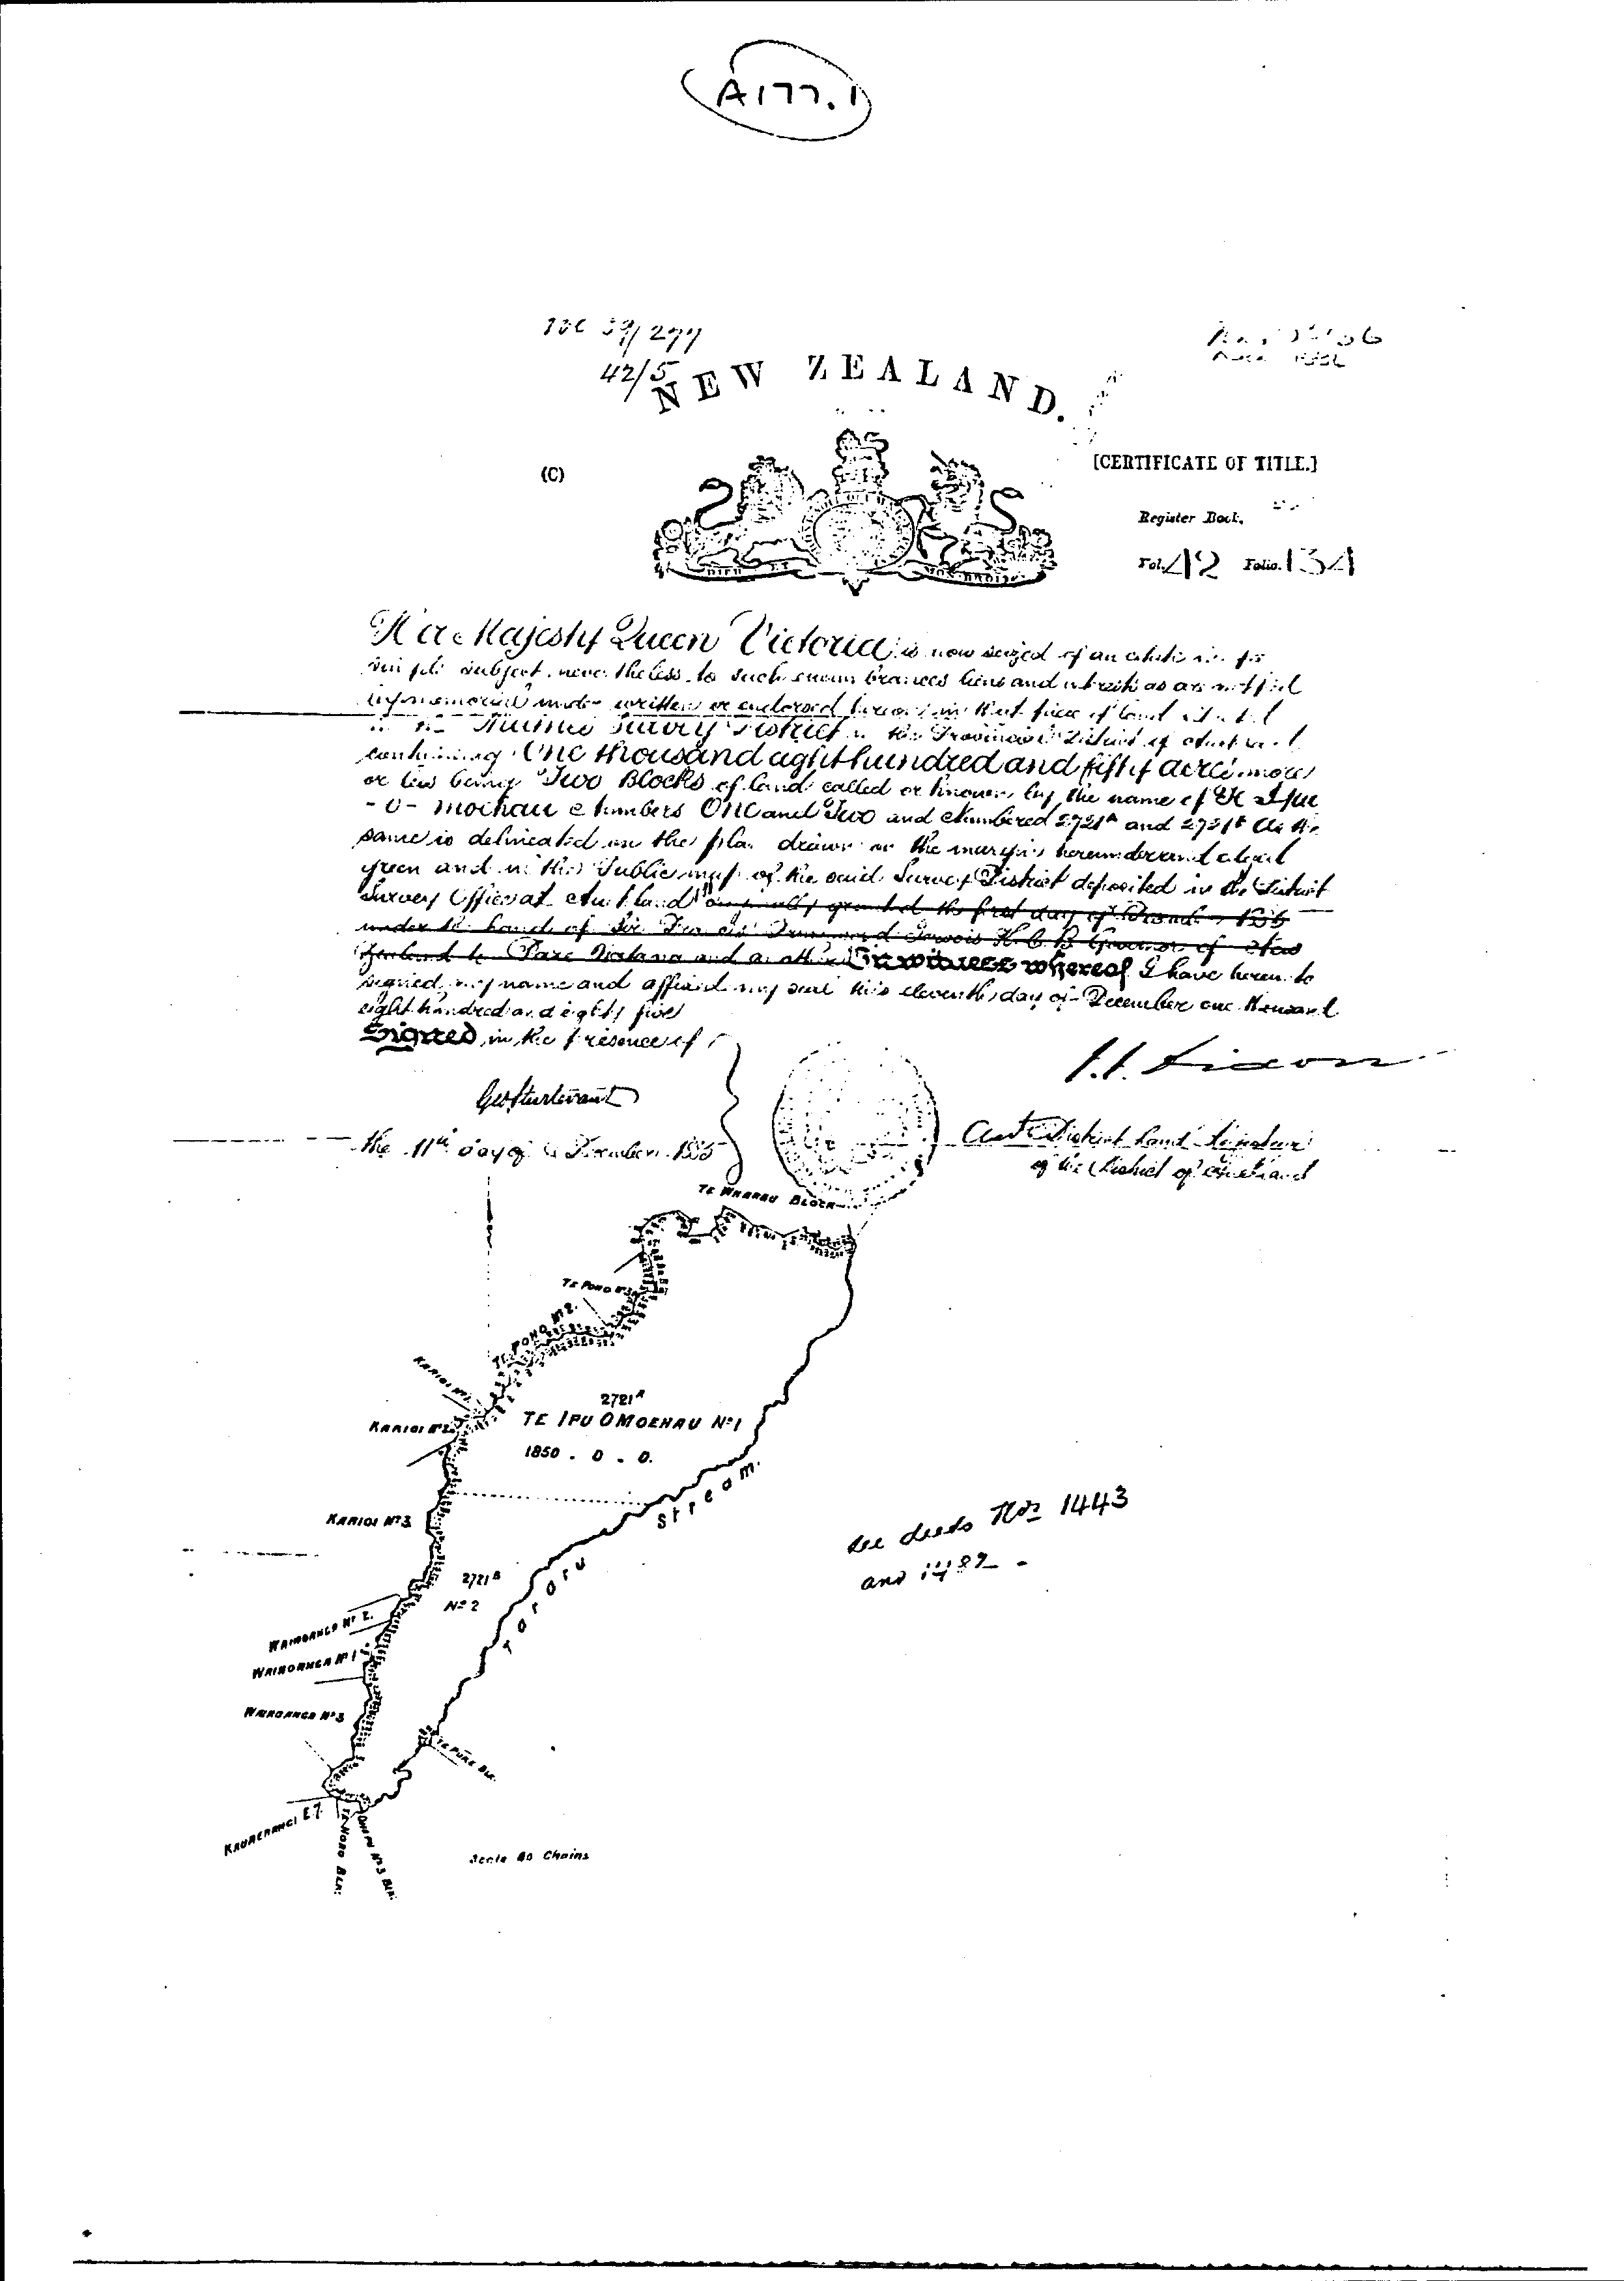 A177.1
42/5
NEW ZEALAND.
(C)
[CERTIFICATE OF TITLE.]
Register Book,
Vol. 42 Folio. 134
Her Majesty Queen Victoria is now seized of an estate in fee
simple subject nevertheless to such encumbrances liens and interests as are notified
by memorial under written or endorsed hereon in that piece of land situated
in the Survey District in the Provincial District of Auckland
containing One thousand eight hundred and fifty acres more
or less being Two Blocks of land called or known by the name of Te Ipu
- o - moehau Numbers One and Two and Numbered 2721A and 2721B as the
same is delineated on the plan drawn on the margin hereunder edged
green and in the Public map of the said Survey District deposited in the District
Survey Office at Auckland originally granted the first day of
under the hand of Sir Jervois K.C.B. Governor of New
Zealand to In witness whereof I have hereunto
signed my name and affixed my seal this eleventh day of December one thousand
eight hundred and eighty five
Signed in the presence of
Geo Sturtevant
the 11th day of December 1885
District Land Registrar
of the District of Auckland
TE WHARAU BLOCK
TE POHO Nº 2.
KARIOI Nº 2
2721A
TE IPU OMOEHAU Nº 1
1850 . 0 . 0.
KARIOI Nº 3
2721B
Nº 2
Tararu Stream.
see deeds Nos 1443
and 1482 -
WAIROANGA Nº 2.
WAIROANGA Nº 1
WAIROANGA Nº 3
TE PURE BLK.
KAUAERANGI E7.
Scale 40 Chains